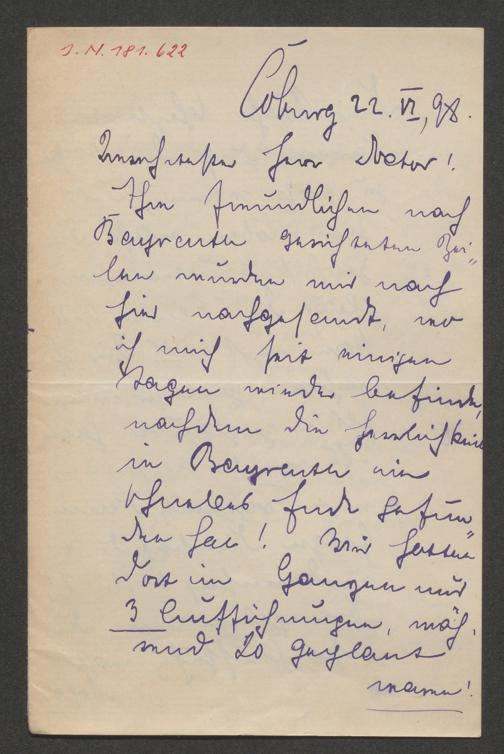 J.N. 181.622
Coburg 22. VI, 98.
Hochverehrter Herr Doctor!
Ihre freundlichen nach
Bayreuth gerichteten Zei-
len wurden mir nach
hier nachgesandt, wo
ich mich seit einigen
Tagen wieder befinde,
nachdem die Herrlichkeit
in Bayreuth ein
schnelles Ende gefun-
den hat! Wir hatten
dort im Ganzen nur
3 Aufführungen, wäh-
rend 20 geplant
waren!